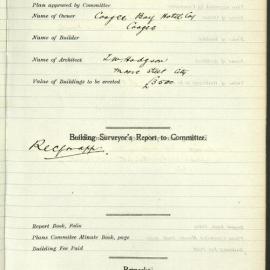 Plan approved by Committee
Name of Owner Coogee Bay Hotel Coy
Coogee
Name of Builder
Name of Architect J. W. Hodgson
Moore Street City
Value of Buildings to be erected £3500
Building Surveyor's Report to Committee.
Rec. for app.
Report Book, Folio
Plans Commitee Minute Book, page
Building Fee Paid
Remarks